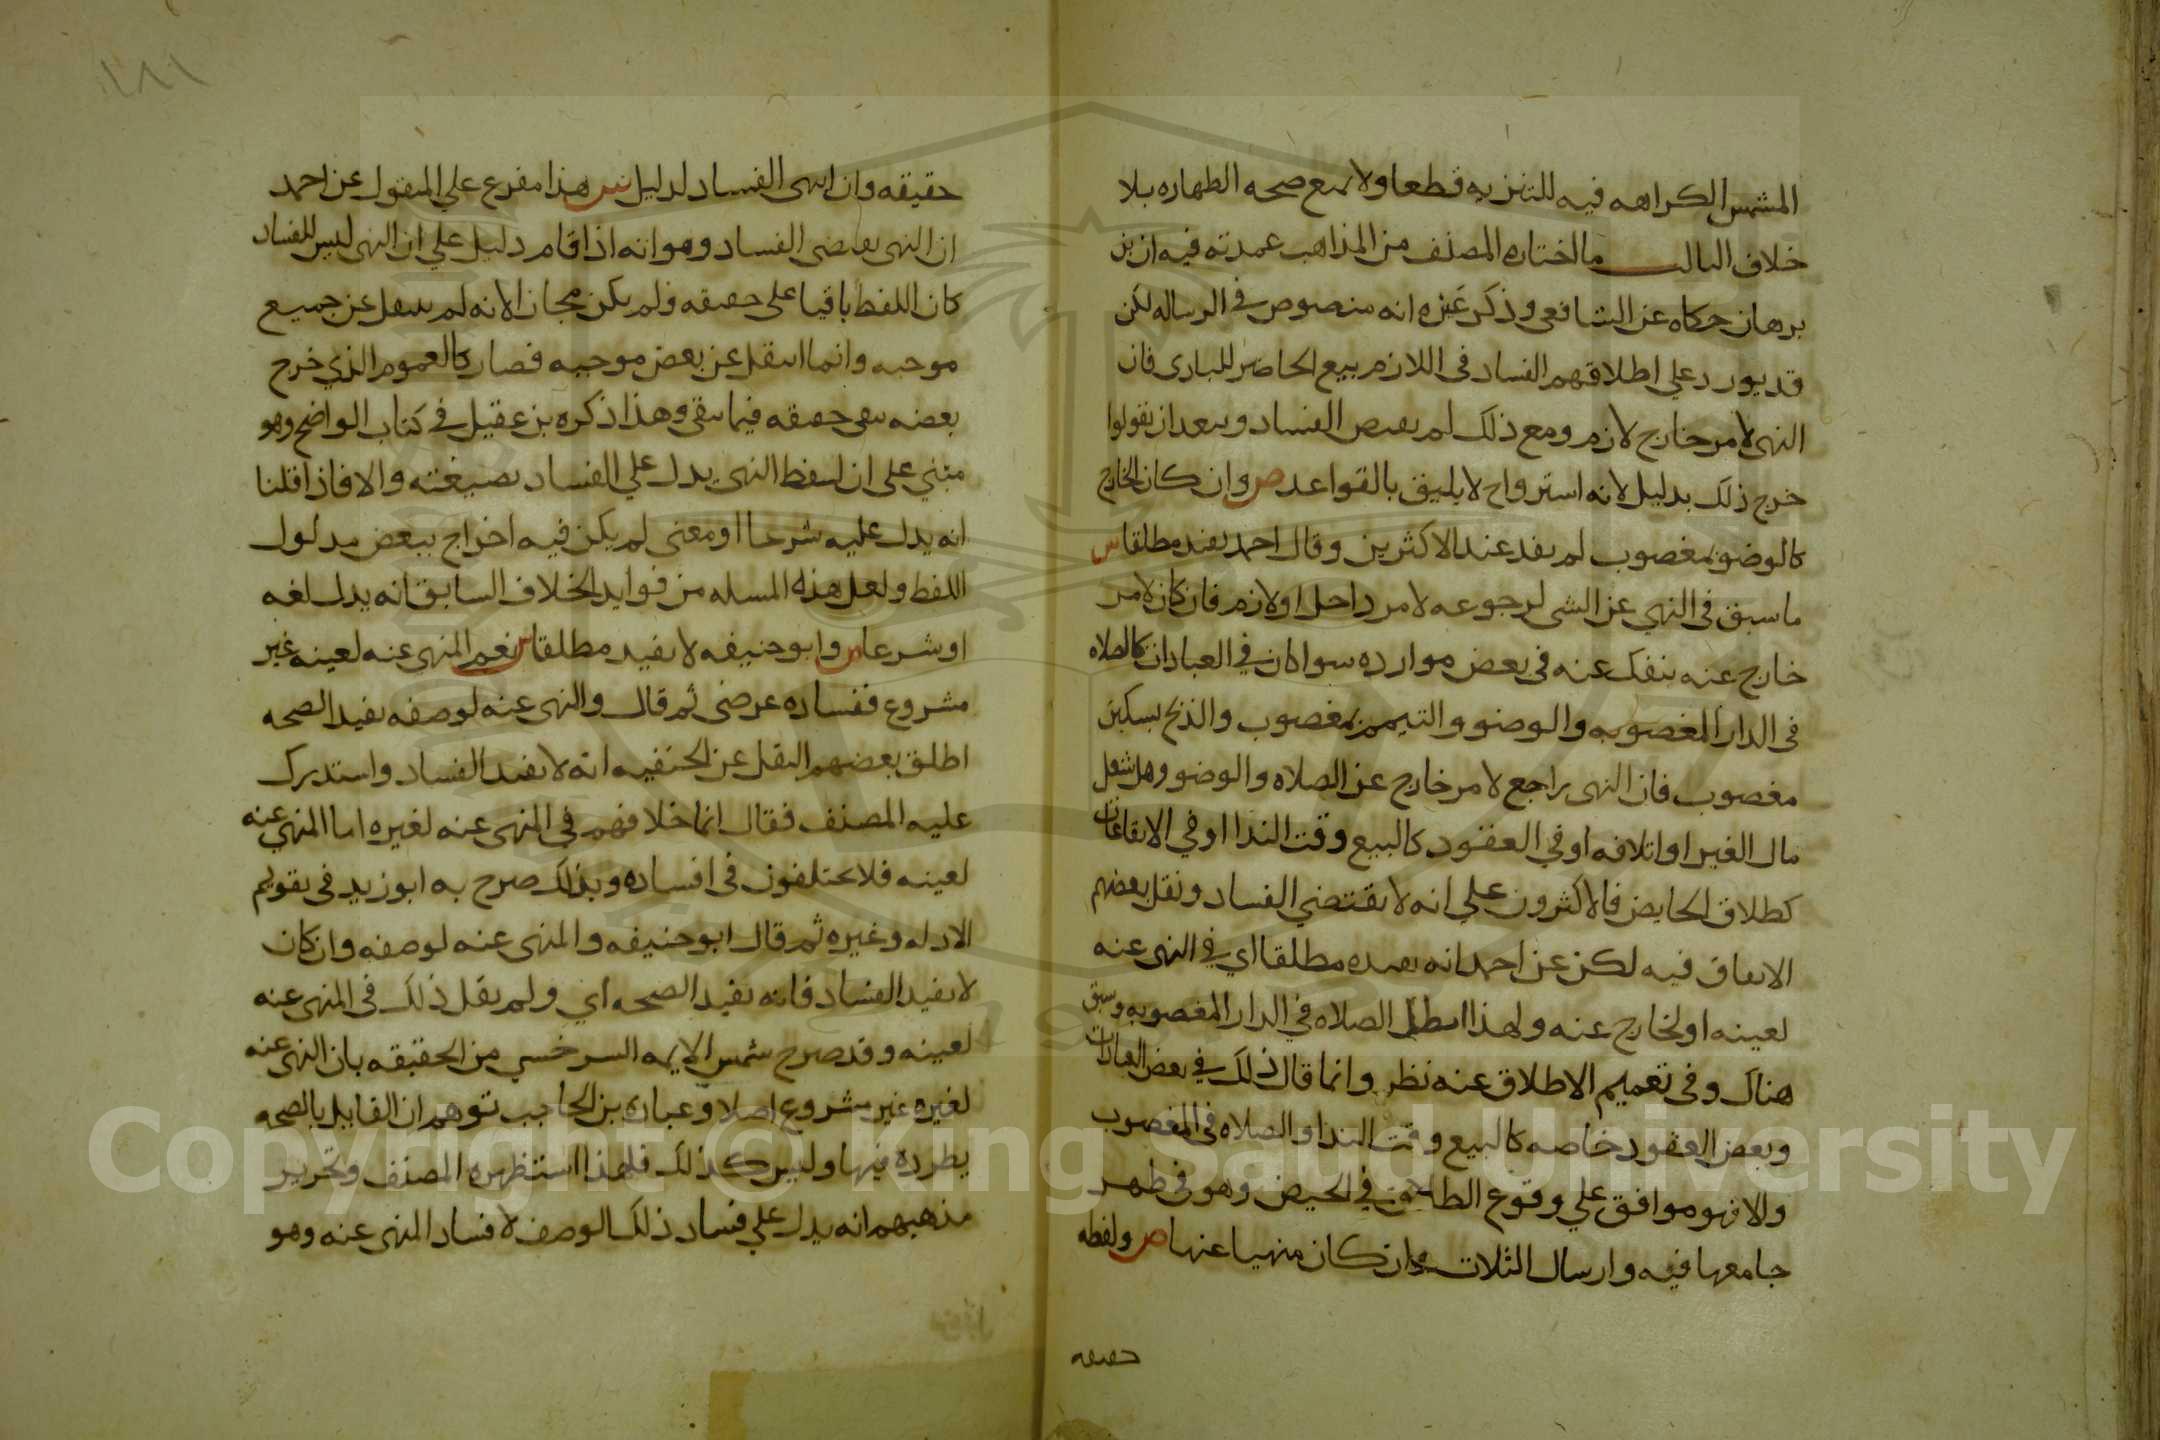 المشمس الكراهه فيه للتنزيه قطعا ولا يمنع صحه الطهاره بلا
خلاف الثالث ما اختاره المصنف من المذاهب عمدته فيه ان بن
برهان حكاه عن الشافعي وذكر غيره انه منصوص في الرساله لكن
قد يورد علي اطلاقهم الفساد في اللازم بيع الحاضر للبادي فان
النهي لامر خارج لازم ومع ذلك لم يقتض الفساد ويبعد ان يقولوا
خرج ذلك بدليل لانه استرواح لا يليق بالقواعد ص وان كان لخارج
كالوضو بمغصوب لم يفد عند الاكثرين وقال احمد يفيد مطلقا س
ما سبق في النهي عن الشي لرجوعه لامر داخل او لازم فان كان لامر
خارج عنه ينفك عنه في بعض موارده سوا كان في العبادات كالصلاه
في الدار المغصوبه والوضو والتيمم بمغصوب والذبح بسكين
مغصوب فان النهي راجع لامر خارج عن الصلاه والوضو وهل شغل
مال الغير او اتلافه او في العقود كالبيع وقت الندا او في الايقاعات
كطلاق الحايض فالاكثرون علي انه لا يقتضي الفساد ونقل بعضهم
الاتفاق فيه لكن عن احمد انه يفيده مطلقا اي في النهي عنه
لعينه او لخارج عنه ولهذا ابطل الصلاه في الدار المغصوبه وسبق
هناك وفي تعميم الاطلاق عنه نظر وانما قال ذلك في بعض العبادات
وبعض العقود خاصه كالبيع وقت الندا والصلاه في المغصوب
والا فهو موافق علي وقوع الطلاق في الحيض وهو في طهر
جامعها فيه وارسال الثلاث وان كان منهيا عنها ص ولفظه
حقيقه
١٨١
حقيقه وان انتهى الفساد لدليل س هذا مفرع علي المنقول عن احمد
ان النهي يقتضي الفساد وهو انه اذا قام دليل علي ان النهي ليس للفساد
كان اللفظ باقيا على حقيقه ولم يكن مجازا لانه لم ينتقل عن جميع
موجبه وانما انتقل عن بعض موجبه فصار كالعموم الذي خرج
بعضه بقي حقيقه فيما بقي وهذا ذكره بن عقيل في كتاب الواضح وهو
مبني على ان لفظ النهي يدل علي الفساد بصيغته والا فاذا قلنا
انه يدل عليه شرعا او معنى لم يكن فيه اخراج ببعض مدلول
اللفظ ولعل هذه المسله من فوايد الخلاف السابق انه يدل لغه
او شرعا ص وابو حنيفه لا يفيد مطلقا س نعم المنهي عنه لعينه غير
مشروع ففساده عرضي ثم قال والنهي عنه لوصفه يفيد الصحه
اطلق بعضهم النقل عن الحنفيه انه لا يفيد الفساد واستدرك
عليه المصنف فقال انما خلافهم في المنهي عنه لغيره اما المنهي عنه
لعينه فلا يختلفون في افساده وبذلك صرح به ابو زيد في تقويم
الادله وغيره ثم قال ابو حنيفه والمنهي عنه لوصفه وان كان
لا يفيد الفساد فانه يفيد الصحه اي ولم يقل ذلك في المنهي عنه
لعينه وقد صرح شمس الايمه السرخسي من الحقيقه بان النهي عنه
لغيره غير مشروع اصلا وعباره بن الحاجب توهم ان القايل بالصحه
يطرده فيها وليس كذلك فلهذا استظهره المصنف وتحرير
مذهبهم انه يدل علي فساد ذلك الوصف لا فساد المنهي عنه وهو
Copyright © King Saud University